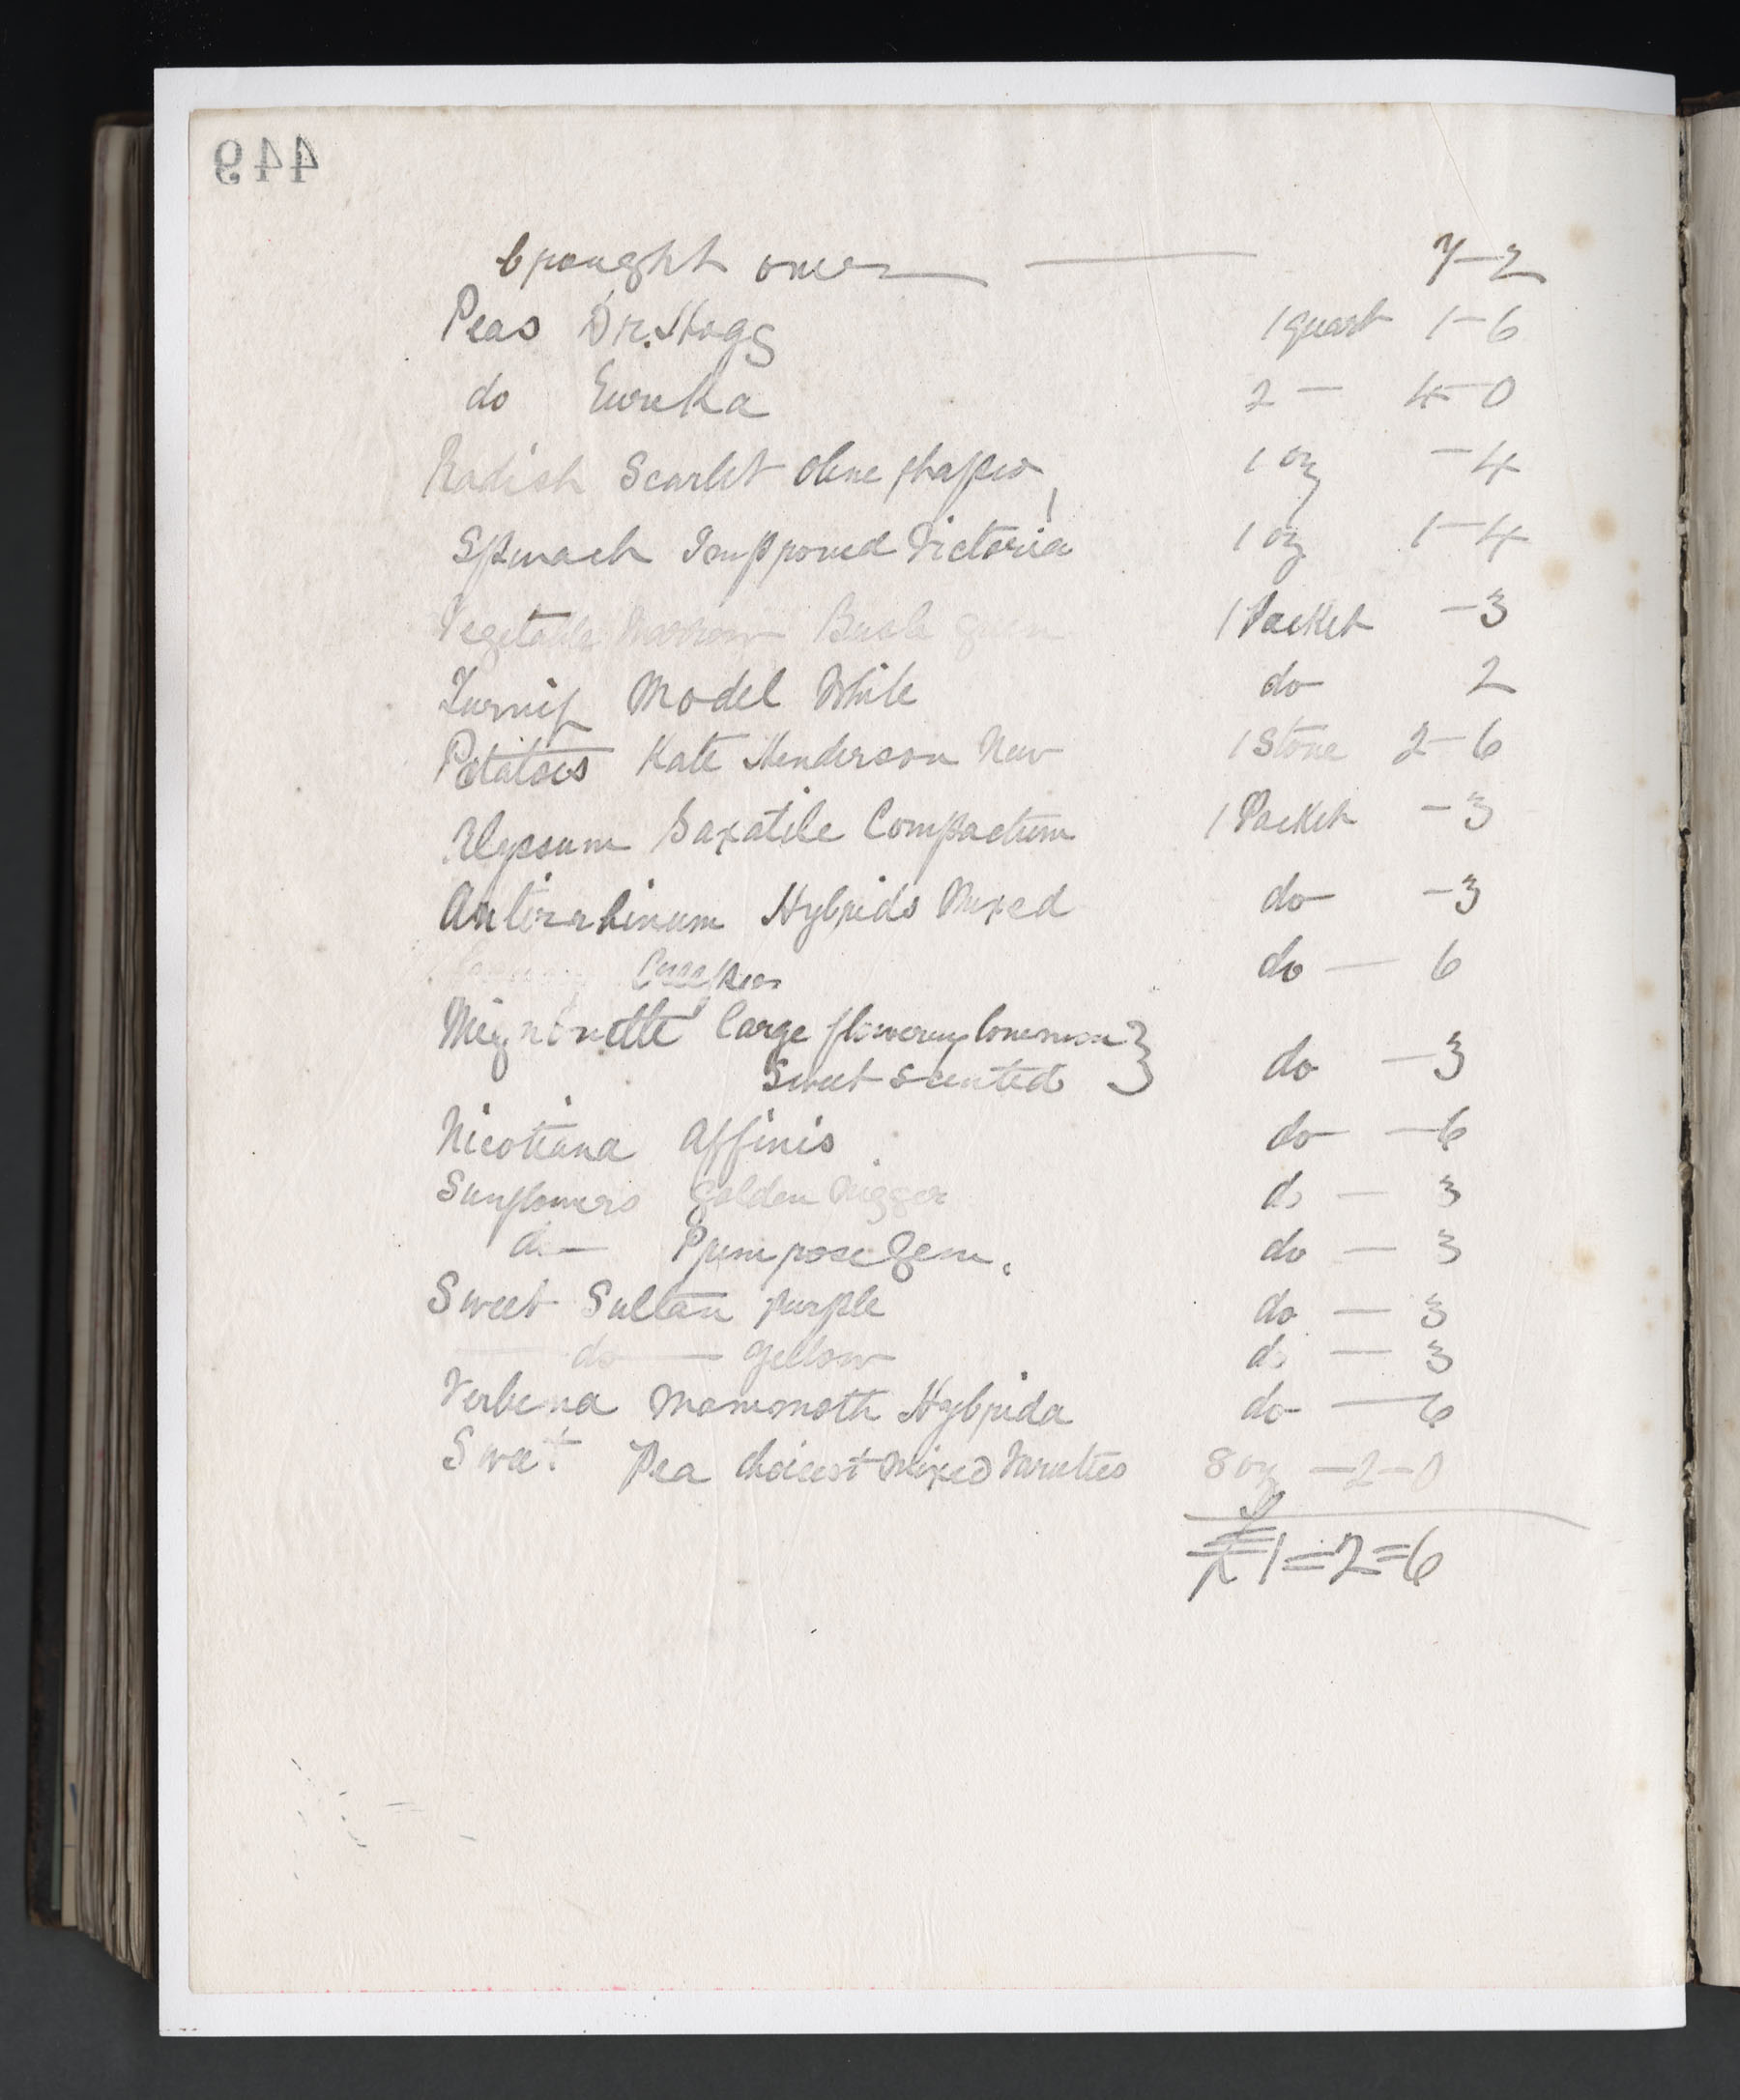 449
brought over — 7-2
Peas Dr. Hogg 1 quart 1-6
do Eureka 2 — 4-0
Radish Scarlet olive shaped 1 oz -4
Spinach Improved Victoria 1 oz 1-4
Vegetable Marrow Bush green 1 Packet -3
Turnip Model White do 2
Potatoes Kate Henderson New 1 Stone 2-6
Alyssum Saxatile Compactum 1 Packet -3
Antirrhinum Hybrids Mixed do -3
Creeper do — 6
Mignonette large flowering common }
Sweet scented } do -3
Nicotiana Affinis do -6
Sunflowers Golden Nigger do — 3
do — Primrose Gem. do — 3
Sweet Sultan purple do — 3
— do — yellow do — 3
Verbena Mammoth Hybrida do — 6
Sweet Pea choicest mixed Varieties 8 oz -2-0
£1=2=6